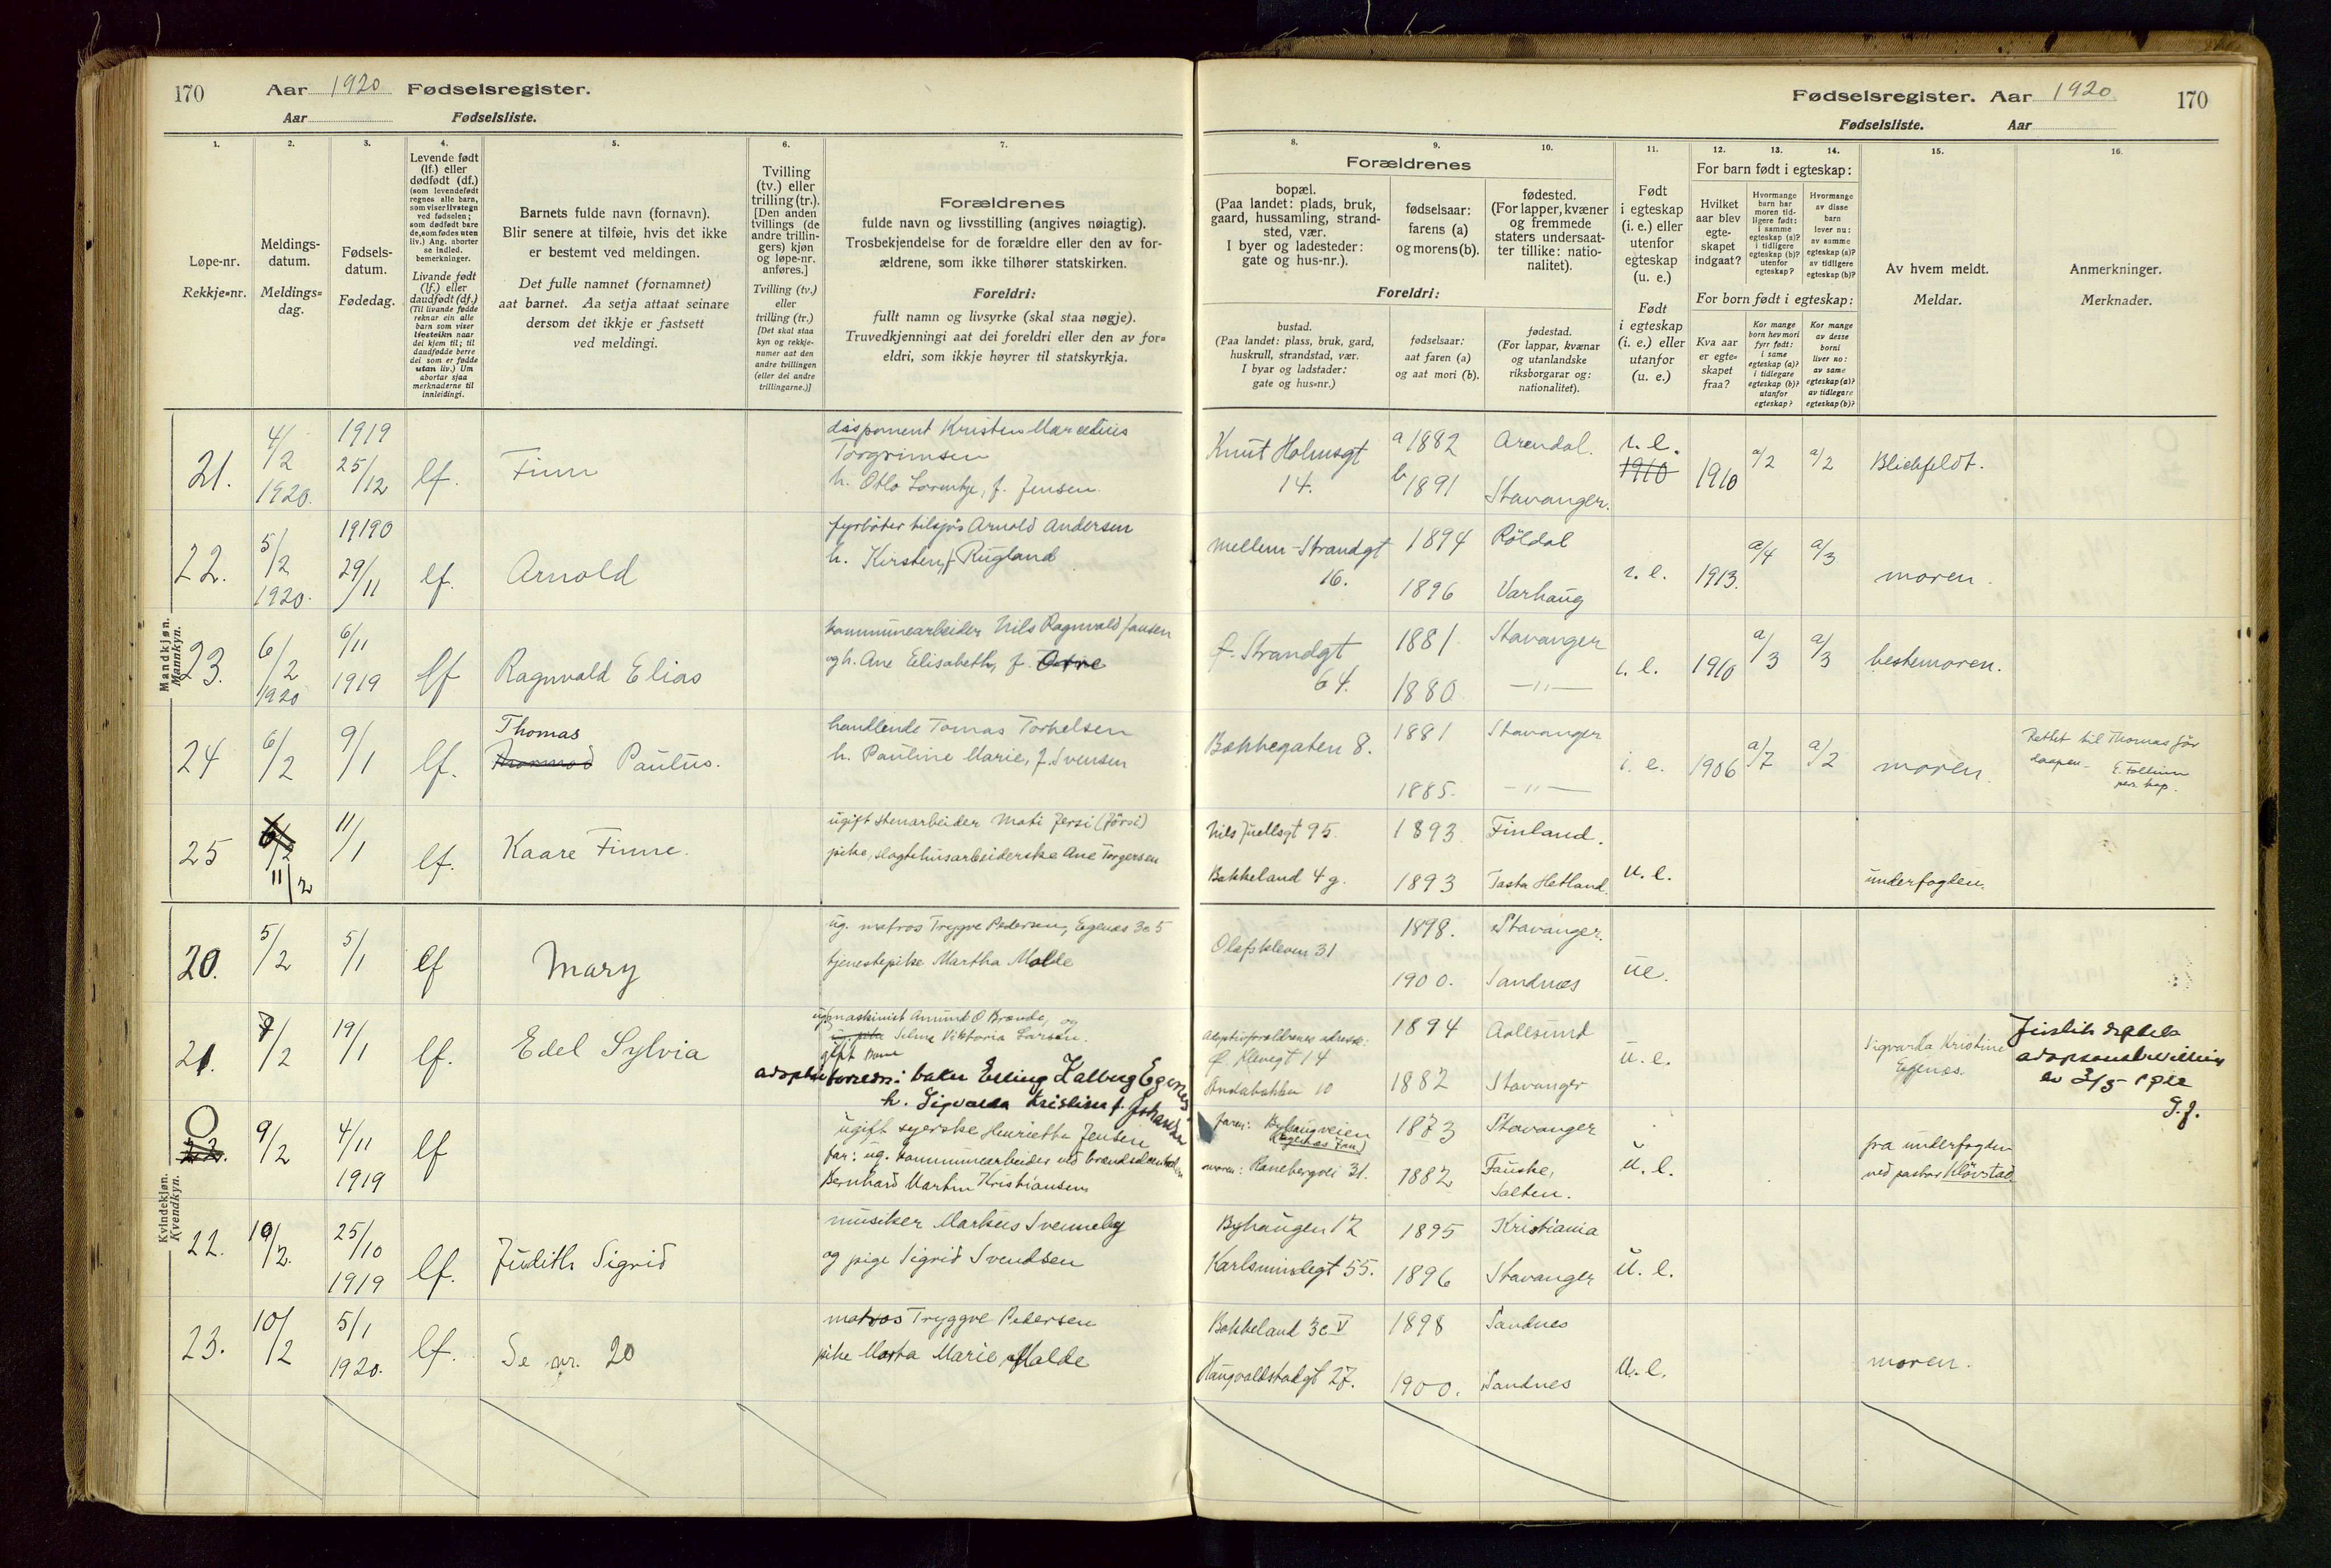 170 Aar 1920 Fødselsregister.
Aar Fødselsliste.
Fødselsregister. Aar 1920 170
Fødselsliste. Aar
1.
Løpe-nr.
Rekkje=nr.
2.
Meldings-
datum.
Meldings=
dag.
3.
Fødsels-
datum.
Fødedag.
4.
Levende født
(lf.) eller
dødfødt (df.)
(som levendefødt
regnes alle barn,
som viser livstegn
ved fødselen;
som dødfødt bare
de, som fødes uten
liv.) Ang. aborter
se indled.
bemerkninger.
Livande født
(lf.) eller
daudfødt (df.)
(Til livande fødde
reknar ein alle
barn som viser
livsteikn naar
dei kjem til; til
daudfødde berre
dei som er fødde
utan liv.) Um
abortar sjaa
merknaderne til
innleidingi.
5.
Barnets fulde navn (fornavn).
Blir senere at tilføie, hvis det ikke
er bestemt ved meldingen.
Det fulle namnet (fornamnet)
aat barnet. Aa setja attaat seinare
dersom det ikkje er fastsett
ved meldingi.
6.
Tvilling
(tv.) eller
trilling (tr.).
[Den anden
tvillings (de
andre trillin-
gers) kjøn
og løpe-nr.
anføres.]
Tvilling (tv.)
eller
trilling (tr.)
[Det skal staa
kyn og rekkje-
numer aat den
andre tvillingen
(eller dei andre
trillingarne.)]
7.
Forældrenes
fulde navn og livsstilling (angives nøiagtig).
Trosbekjendelse for de forældre eller den av for-
ældrene, som ikke tilhører statskirken.
Foreldri:
fullt namn og livsyrke (skal staa nøgje).
Truvedkjenningi aat dei foreldri eller den av for=
eldri, som ikkje høyrer til statskyrkja.
8.
Forældrenes
bopæl.
(Paa landet: plads, bruk,
gaard, hussamling, strand-
sted, vær.
I byer og ladesteder:
gate og hus-nr.).
Foreldri:
bustad.
(Paa landet: plass, bruk, gard,
huskrull, strandstad, vær.
I byar og ladstader:
gate og hus=nr.)
9.
fødselsaar:
farens (a)
og morens (b).
fødselsaar:
aat faren (a)
og aat mori (b).
10.
fødested.
(For lapper, kvæner
og fremmede
staters undersaat-
ter tillike: natio-
nalitet).
fødestad.
(For lappar, kvænar
og utanlandske
riksborgarar og:
nationalitet).
11.
Født
i egteskap
(i. e.) eller
utenfor
egteskap
(u. e.)
Født
i egteskap
(i. e.) eller
utanfor
(u. e.)
12. 13. 14.
For barn født i egteskap:
Hvilket
aar blev
egte-
skapet
indgaat?
Hvormange
barn har
moren tid-
ligere født:
i samme
egteskap (a)?
i tidligere
egteskap (b)?
utenfor
egteskap?
Hvormange
av disse
barn
lever nu:
av samme
egteskap (a)?
av tidligere
egteskap (b)?
For born født i egteskap:
Kva aar
er egte=
skapet
fraa?
Kor mange
born hev mori
fyrr født:
i same
egteskap (a)?
i tidlegare
egteskap (b)?
utanfor
egteskap?
Kor mange
av desse
borni
liver no:
av same
egteskap (a)?
av tidlegare
egteskap (b)?
15.
Av hvem meldt.
Meldar.
16.
Anmerkninger.
Merknader.
Mandkjøn.
Mannkyn.
21.
4/2
1920.
1919
25/12
lf.
Finn
disponent Kristen Marcelius
Torgrimsen
h. Otlo Lorentze, f. Jensen.
Knut Holmsgt
14.
a 1882
b 1891
Arendal.
Stavanger.
i. e.
1910
1910
a/2
a/2
Blichfeldt.
22.
5/2
1920.
19190
29/11
lf.
Arnold
fyrbøter tilsjøs Arnold Andersen
h. Kirsten, f. Rugland
Mellem-Strandgt
16.
1894
1896
Röldal
Varhaug
i. e.
1913.
a/4
a/3
moren.
23.
6/2
1920
6/11
1919
lf
Ragnvald Elias
kommunearbeider Nils Ragnvald Jansen
og h. Ane Elisabeth, f.
Ø. Strandgt
64.
1881
1880
Stavanger
—"—
i. e.
1910
a/3
a/3
bestemoren.
24
6/2
9/1
lf.
Thomas
Paulus.
handlende Tomas Torkelsen
h. Pauline Marie, f. Svensen
Bakkegaten 8.
1881
1885.
Stavanger
—"—
i. e.
1906
a/7
a/2
moren.
Rettet til Thomas før
daapen.
25
6/2
11/2
11/1
lf.
Kaare Finne.
ugift stenarbeider Mati Jersi (Jörsi)
pike, slagtehusarbeiderske Ane Torgersen
Nils Juellsgt 95.
Bakkeland 4 g.
1893
1893
Finland.
Tasta Hetland.
u. e.
underfogden.
Kvindekjøn.
Kvendkyn.
20.
5/2
5/1
lf
Mary
ug. matros Trygve Pedersen, Egenæs 3c 5
tjenestepike Martha Malde
Olafskleven 31
1898.
1900.
Stavanger.
Sandnes
ue.
21.
7/2
19/1
lf.
Edel Sylvia
ug. maskinist Amund O Brande, og
ug. pike Selma Viktoria Larsen.
gift
adoptivforældre: baker Erling Kalberg Egenes
h. Sigvarda Kristine f. Johansen
Adoptivforældrenes adresse:
Ø. Klevegt 14
Andabakken 10
1894
1882
Aalesund
Stavanger
u. e.
Sigvarda Kristine
Egenæs.
G. J.
22.
9/2
4/11
1919
lf
ugift syerske Henriette Jensen
far: ug. kommunearbeider ved brændselcentralen
Bernhard Martin Kristiansen
faren: Byhaugveien
(Egenæs Jan)
moren: Ranebergvei 31.
1873
1882
Stavanger
Fauske,
Salten.
u. e.
fra underfogden
ved pastor Kløvstad
22.
10/2.
25/10
1919
lf.
Judith Sigrid
musiker Markus Svenneby
og pige Sigrid Svendsen
Byhaugen 12
Karlsmindegt 55.
1895
1896
Kristiania
Stavanger
u. e.
23.
10/2
5/1
1920.
lf.
Se nr. 20
matros Tryggve Pedersen
pike Marta Marie Malde
Bakkeland 3c V
Haugvaldstadgt 27.
1898
1900.
Sandnes
Sandnes
u. e.
moren.